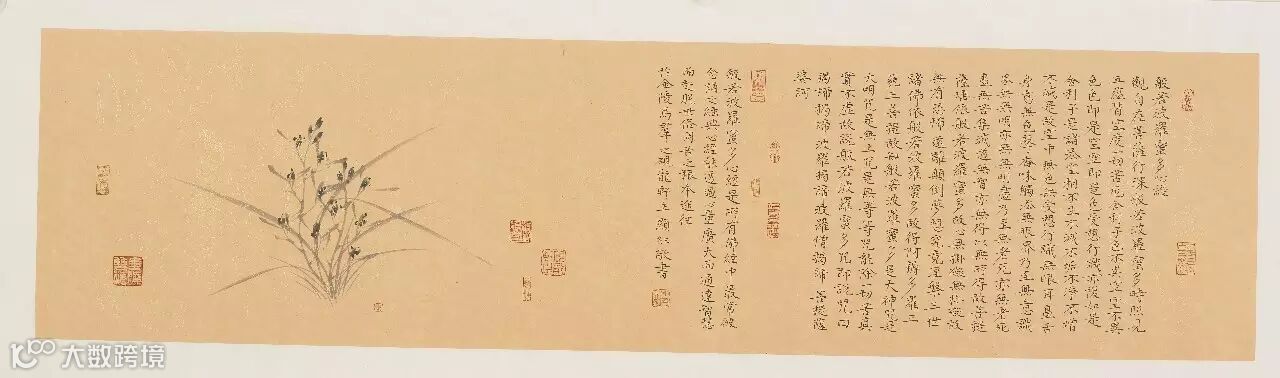 般若波羅蜜多心經
觀自在菩薩行深般若波羅蜜多時照見
五蘊皆空度一切苦厄舍利子色不異空空不異
色色即是空空即是色受想行識亦復如是
舍利子是諸法空相不生不滅不垢不淨不增
不減是故空中無色無受想行識無眼耳鼻舌
身意無色聲香味觸法無眼界乃至無意識
界無無明亦無無明盡乃至無老死亦無老死
盡無苦集滅道無智亦無得以無所得故菩提
薩埵依般若波羅蜜多故心無掛礙無掛礙故
無有恐怖遠離顛倒夢想究竟涅槃三世
諸佛依般若波羅蜜多故得阿耨多羅三
藐三菩提故知般若波羅蜜多是大神咒是
大明咒是無上咒是無等等咒能除一切苦真
實不虛故說般若波羅蜜多咒即說咒曰
揭諦揭諦波羅揭諦波羅僧揭諦菩提薩
婆訶
般若波羅蜜多心經是所有佛經中最常被
念誦之經典心經能透過心量廣大而通達智慧
照世俗之根本途徑
於金陵龍軒主敬書
大数跨境